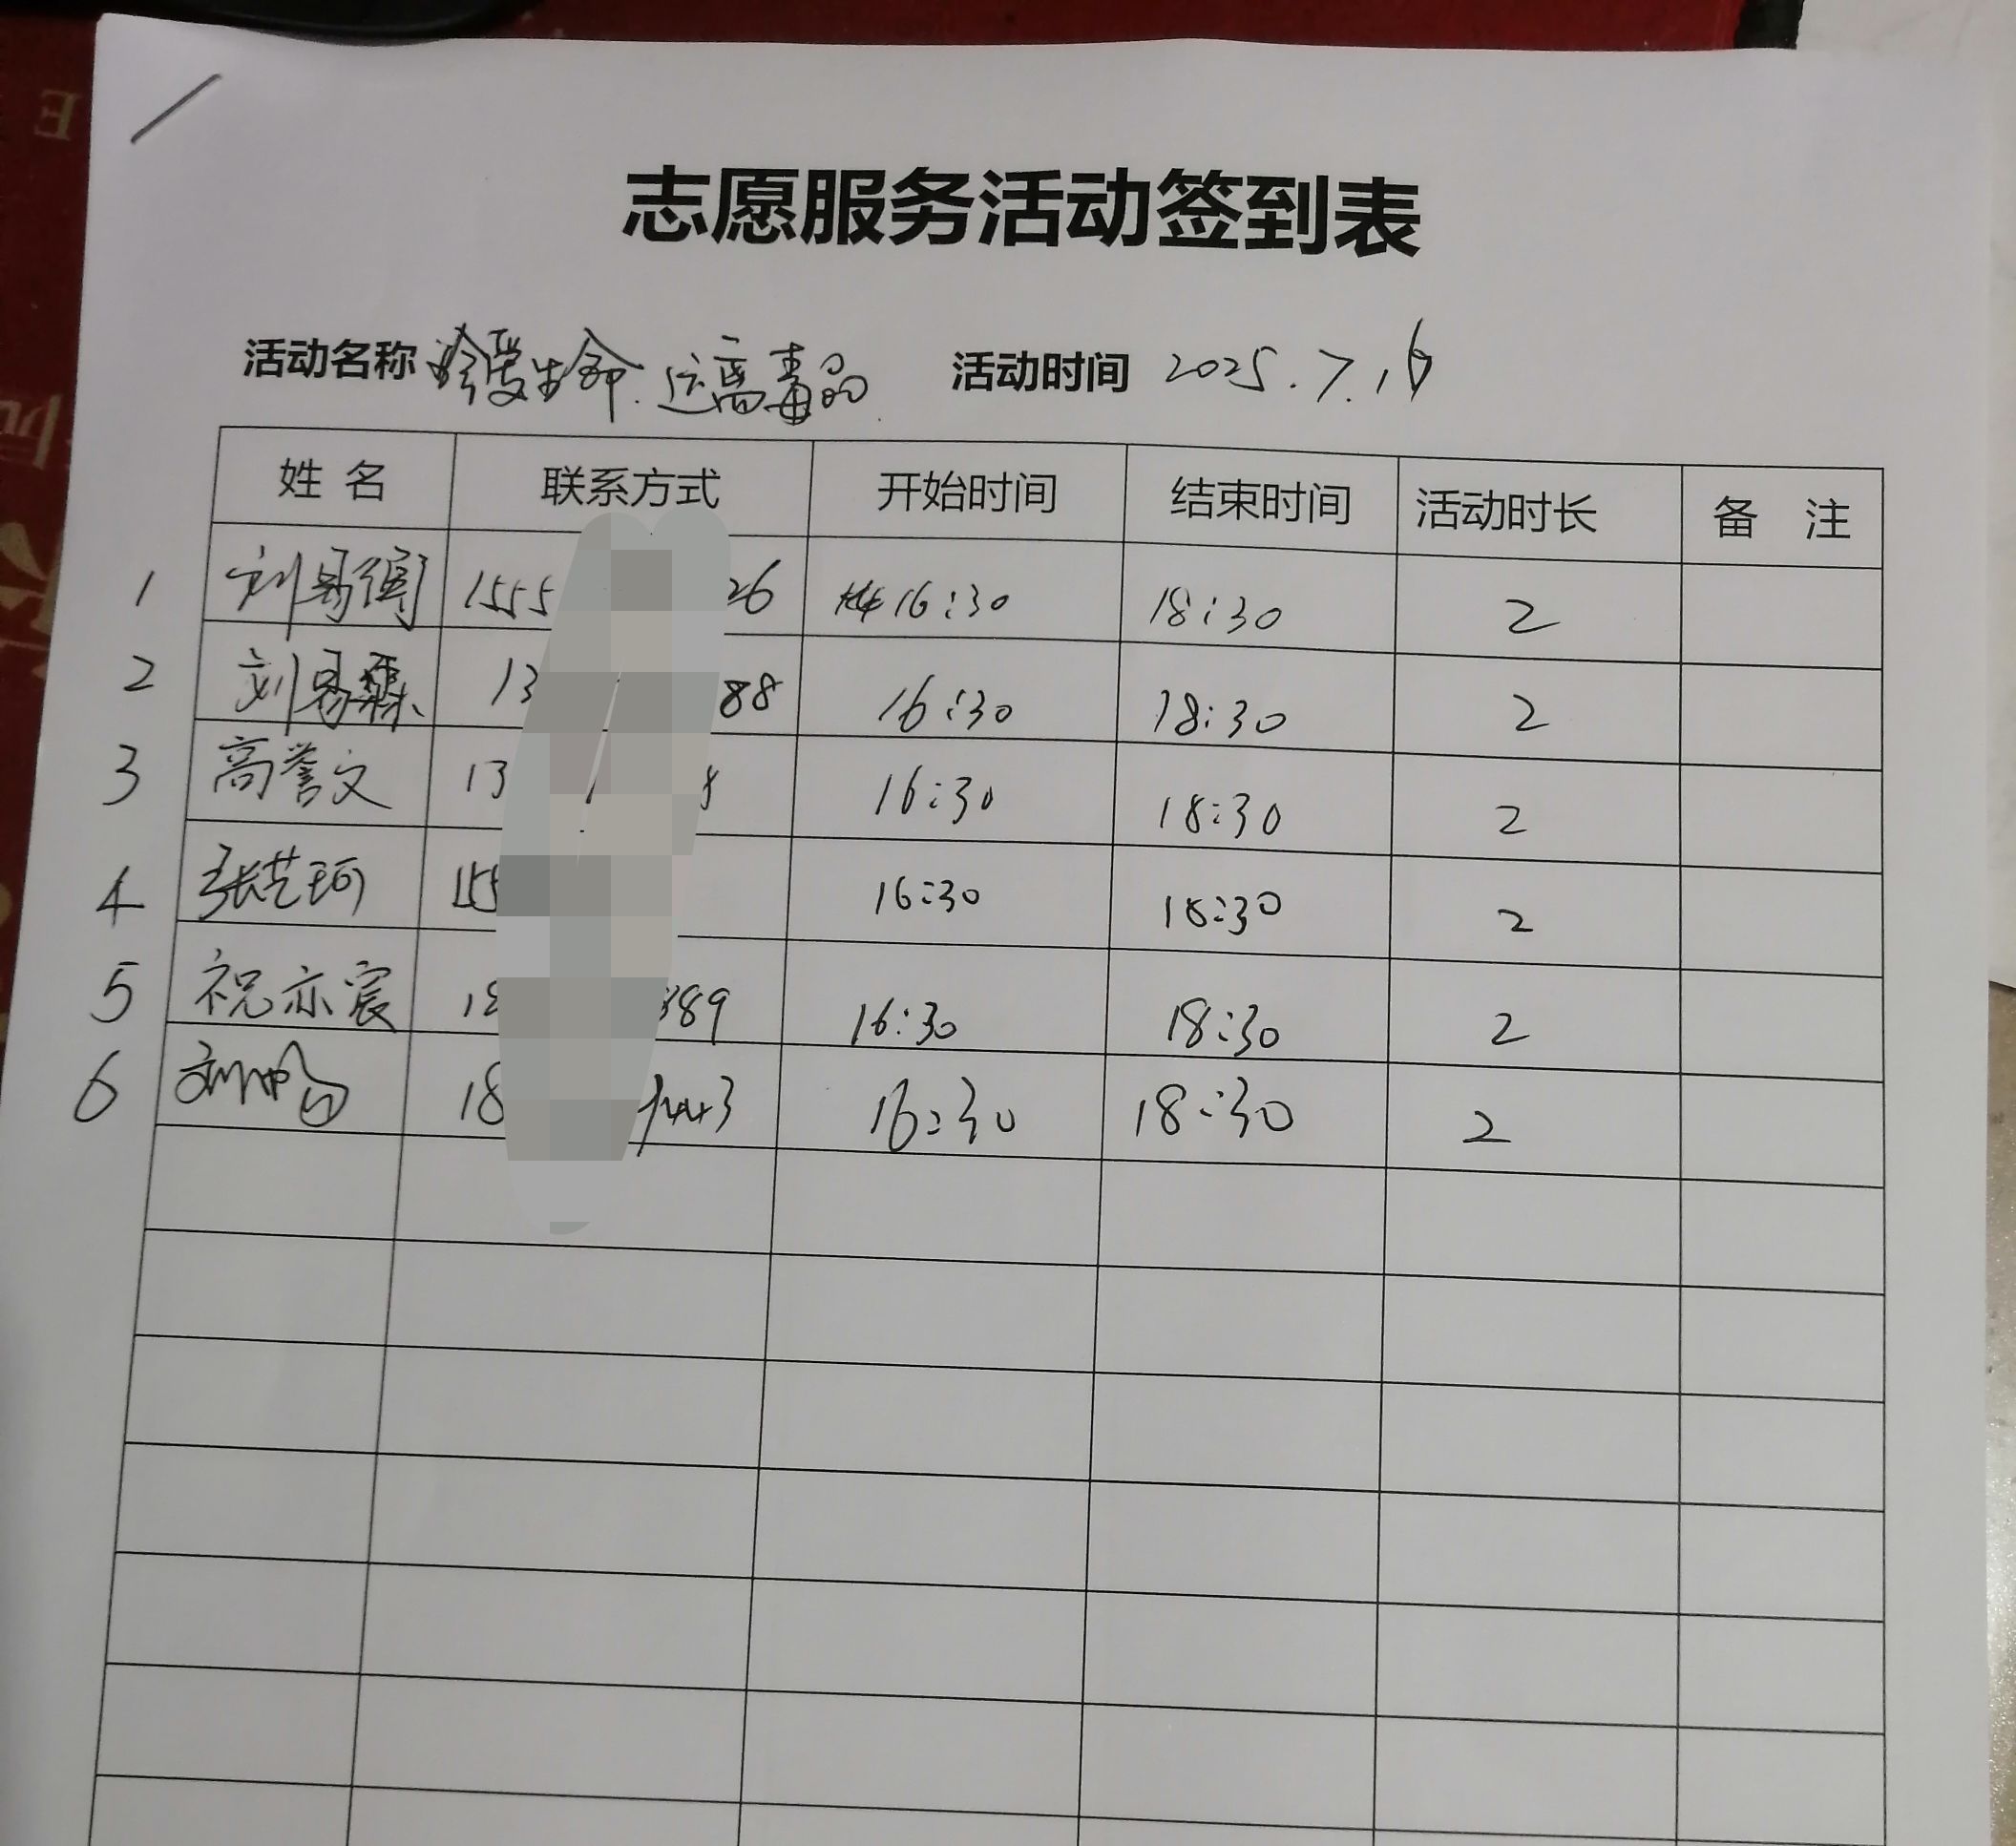 志愿服务活动签到表
活动名称 珍爱生命.远离毒品 活动时间 2025.7.16
姓名 联系方式 开始时间 结束时间 活动时长 备注
1 刘易 1555 26 16:30 18:30 2
2 刘易霖 13 88 16:30 18:30 2
3 高誉文 13 16:30 18:30 2
4 张艺珂 155 16:30 18:30 2
5 祝亦宸 18 389 16:30 18:30 2
6 18 443 16:30 18:30 2